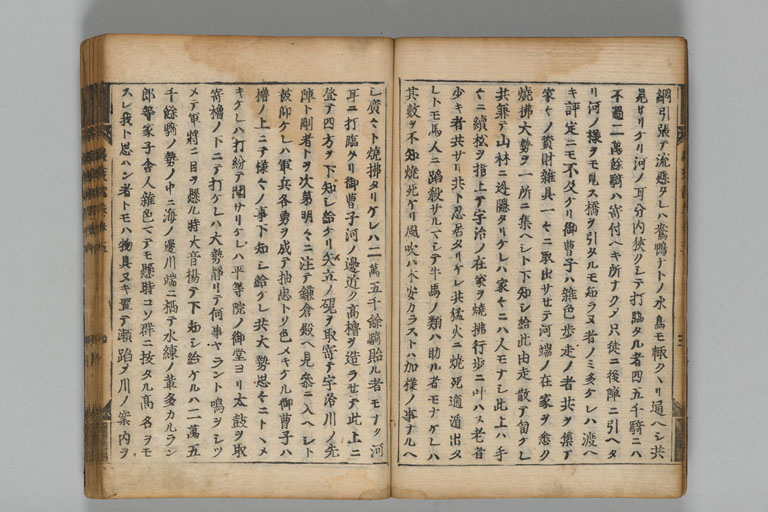 綱引張テ流懸タレハ鴛鴨ナトノ水鳥モ輙クヽリ通ヘシ共
見サリケリ河ノ耳分内狭クシテ打臨タル者四五千騎ニハ
不過二萬餘騎ハ寄付ヘキ所ナクノ只徒ニ後陣ニ引ヘタ
リ河ノ様ヲモ見ス橋ヲ引タルモ知ラヌ者ノミ多ケレハ渡ヘ
キ評定ニモ不及ケリ御曹子ハ雑色歩走ノ者共ヲ集テ
家々ノ資財雑具一々ニ取出サセテ河端ノ在家ヲ悉ク
焼拂大勢ヲ一所ニ集ヘシト下知シ給此由走散テ罵ケレ
共兼テ山林ニ迯隠タリケレハ家々ニハ人モナシ此上ハ手
々ニ續松ヲ指上テ宇治ノ在家ヲ焼拂行歩ニ叶ハヌ老者
少キ者共サリ共ト忍居タリケレ共猛火ニ焼死適遁出タ
レトモ馬人ニ蹈殺サルマシテ牛馬ノ類ハ助ル者モナケレハ
其數ヲ不知焼死ケリ風吹ハ木安カラストハ加様ノ事ナルヘ
シ廣々ト焼拂タリケレハ二萬五千餘騎胎ル者モナク河
耳ニ打臨タリ御曹子河ノ邊近ク高櫓ヲ造ラセテ此上ニ
登テ四方ヲ下知シ給ケリ矢立ノ硯ヲ取寄テ宇治川ノ先
陣ト剛者トヲ次第明々ニ注テ鎌倉殿ヘ見参ニ入ヘシト
被仰ケレハ軍兵各勇ヲ成テ抽忠トソ色メキケル御曹子ハ
櫓ノ上ニテ様々ノ事下知シ給ケレ共大勢思々ニトヽメ
キケレハ打紛テ聞サリケレハ平等院ノ御堂ヨリ太鼓ヲ取
寄櫓ノ下ニテ打ケレハ大勢静リテ何事ヤラント鳴ヲシツ
メテ軍将ニ目ヲ懸ル時大音揚テ下知シ給ケルハ二萬五
千餘騎ノ勢ノ中ニ海ノ邊川端ニ栖テ水練ノ輩多カルラン
郎等家子舎人雑色マテモ懸時コソ群ニ抜タル高名ヲモ
スレ我ト思ハン者トモハ物具ヌキ置テ瀬蹈ヲ川ノ案内ヲ